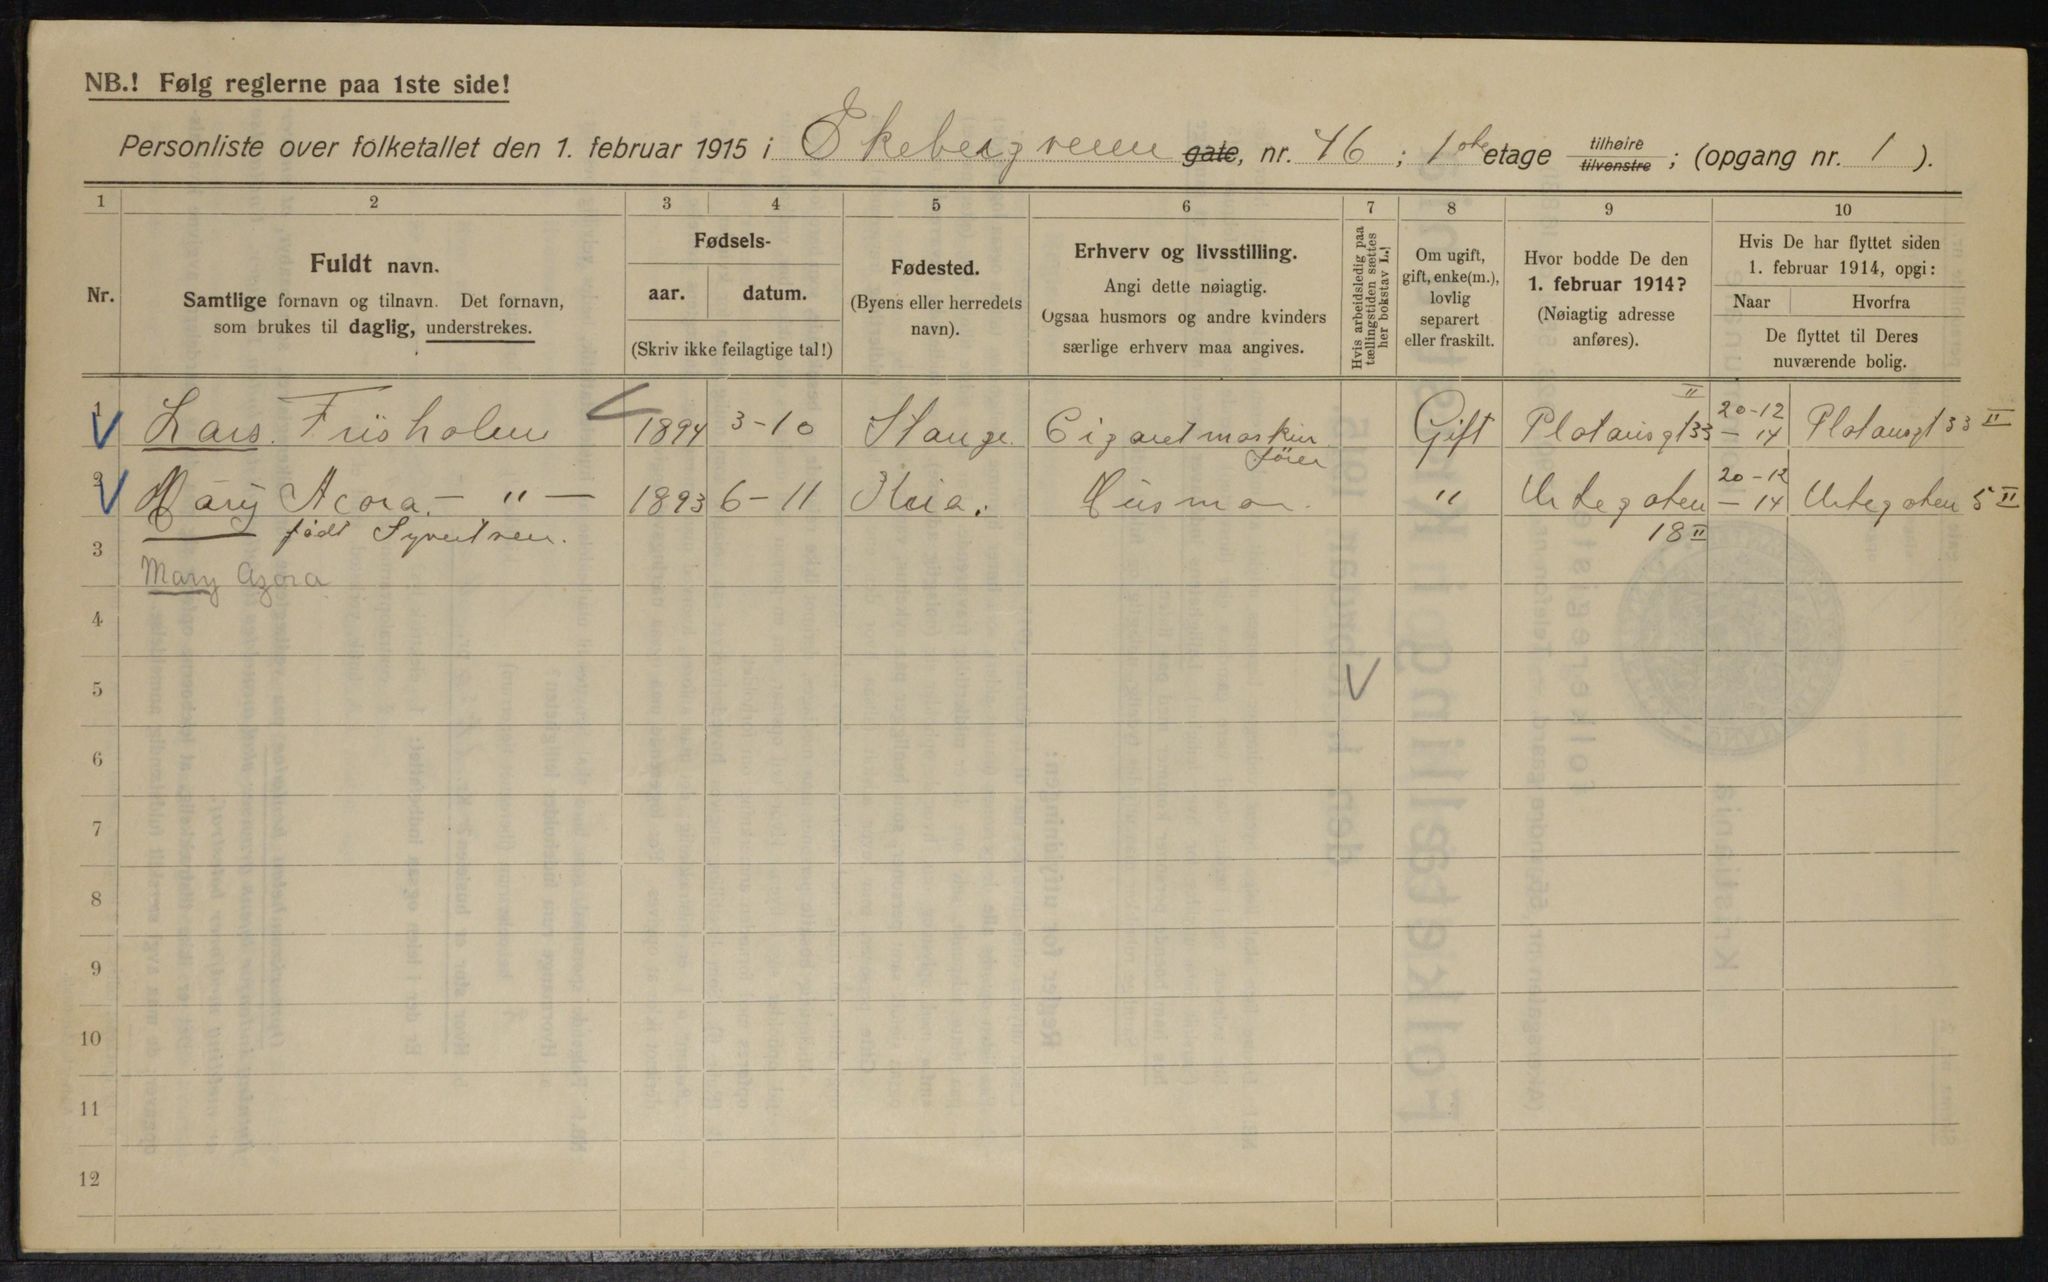 NB.! Følg reglerne paa 1ste side!
Personliste over folketallet den 1. februar 1915 i Ekebergveien gate, nr. 46 ; 1ste etage tilhøire tilvenstre ; (opgang nr. 1 ).
1 2 3 4 5 6 7 8 9 10
Nr.
Fuldt navn.
Samtlige fornavn og tilnavn. Det fornavn,
som brukes til daglig, understrekes.
Fødsels-
aar. datum.
(Skriv ikke feilagtige tal!)
Fødested.
(Byens eller herredets
navn).
Erhverv og livsstilling.
Angi dette nøiagtig.
Ogsaa husmors og andre kvinders
særlige erhverv maa angives.
Hvis arbeidsledig paa
tællingstiden sættes
her bokstav L.!
Om ugift,
gift, enke(m.),
lovlig
separert
eller fraskilt.
Hvor bodde De den
1. februar 1914?
(Nøiagtig adresse
anføres).
Hvis De har flyttet siden
1. februar 1914, opgi:
Naar Hvorfra
De flyttet til Deres
nuværende bolig.
1 Lars Friisholm 1894 3-10 Stange Cigaretmaskin fører Gift Platausgt 33 II 20-12 - 14 Platausgt 33 II
2 Mary Acora - " - 1893 6-11 Kria. Husmor " Urtegaten 18 II 20-12 - 14 Urtegaten 5 II
født Syvertsen.
3 Mary Azora
4
5
6
7
8
9
10
11
12